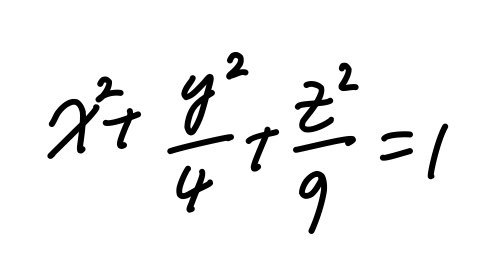 x² + y²/4 + z²/9 = 1